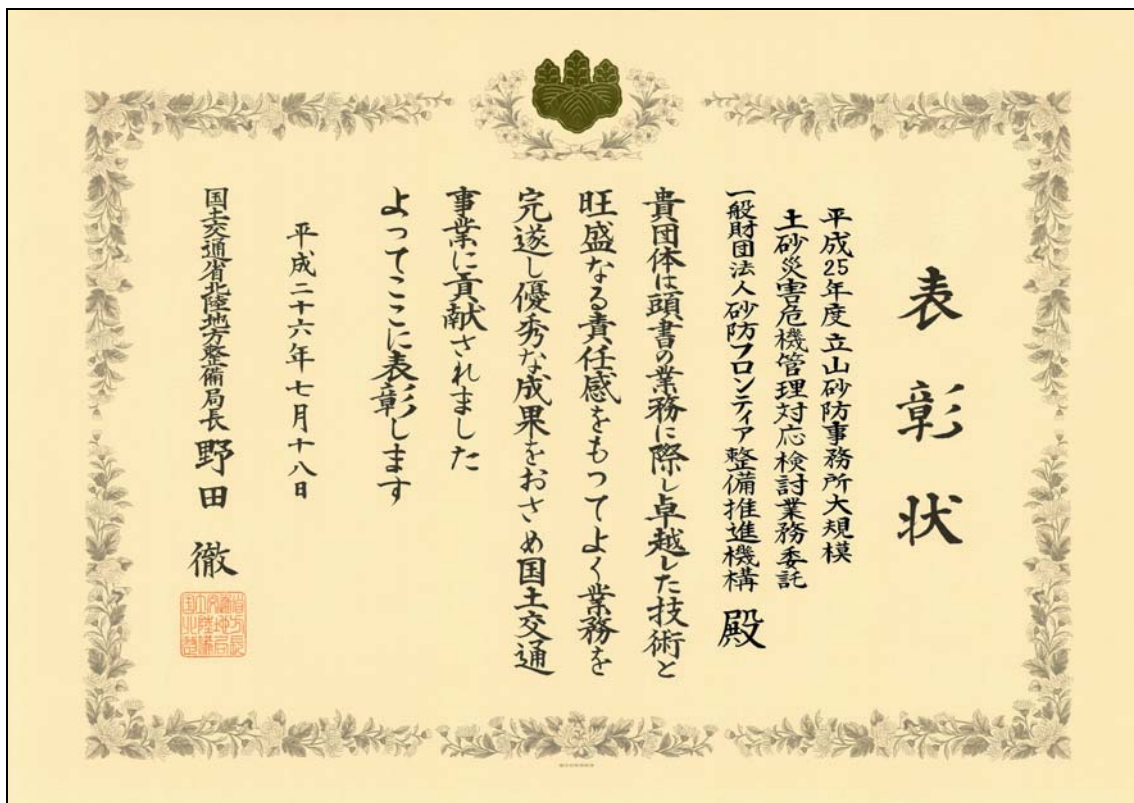 表彰状
平成25年度立山砂防事務所大規模
土砂災害危機管理対応検討業務委託
一般財団法人砂防フロンティア整備推進機構 殿
貴団体は頭書の業務に際し卓越した技術と
旺盛なる責任感をもつてよく業務を
完遂し優秀な成果をおさめ国土交通
事業に貢献されました
よってここに表彰します
平成二十六年七月十八日
国土交通省北陸地方整備局長 野田 徹